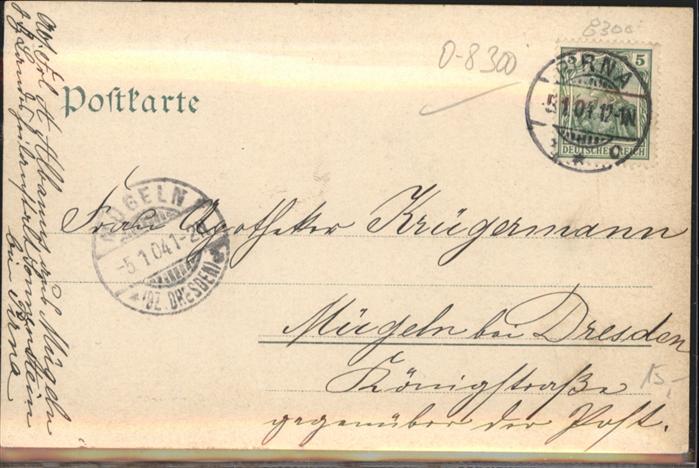 8300
D-8300
5
DEUTSCHES REICH
PIRNA
5.1.04.12-1N
* c
Postkarte
MÜGELN
-5.1.04.1-2
*(BZ. DRESDEN)*
Frau Apotheker Krügermann
Mügeln bei Dresden
Königstraße
gegenüber der Post.
15,-
aus Mügeln
Sonnenstein
bei Pirna